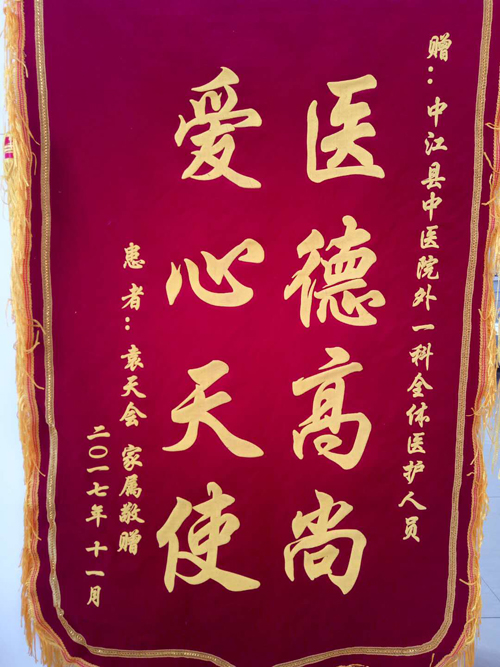 赠：中江县中医院外一科全体医护人员
医德高尚
爱心天使
患者：袁天会 家属敬赠
二〇一七年 十一月